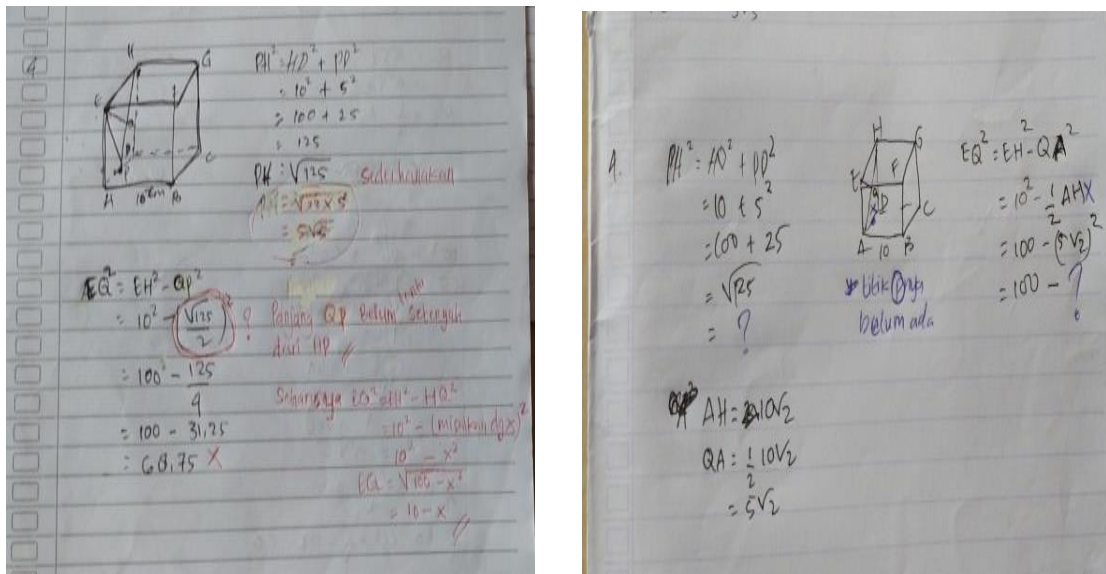 4
H
G
E
Q
P
C
A
10 cm
B
PH² = HD² + PD²
= 10² + 5²
= 100 + 25
= 125
PH = √125 sederhanakan
= 5√5
EQ² = EH² - QP²
= 10² - (√125/2)² ? Panjang QP Belum tentu setengah
dari HP //
= 100 - 125/4
Seharusnya EQ² = EH² - HQ²
= 100 - 31,25
= 10² - (misalkan dgx)²
= 68,75 X
10² - x²
EQ = √100 - x²
= 10 - x //
4.
PH² = HD² + PD²
= 10 + 5²
= 100 + 25
= √125
= ?
H
G
E
F
Q
D
C
A 10 B
titik P nya
belum ada
EQ² = EH² - QA²
= 10² - 1/2 AH X
= 100 - (5√2)²
= 100 - ?
AH = 10√2
QA = 1/2 10√2
= 5√2